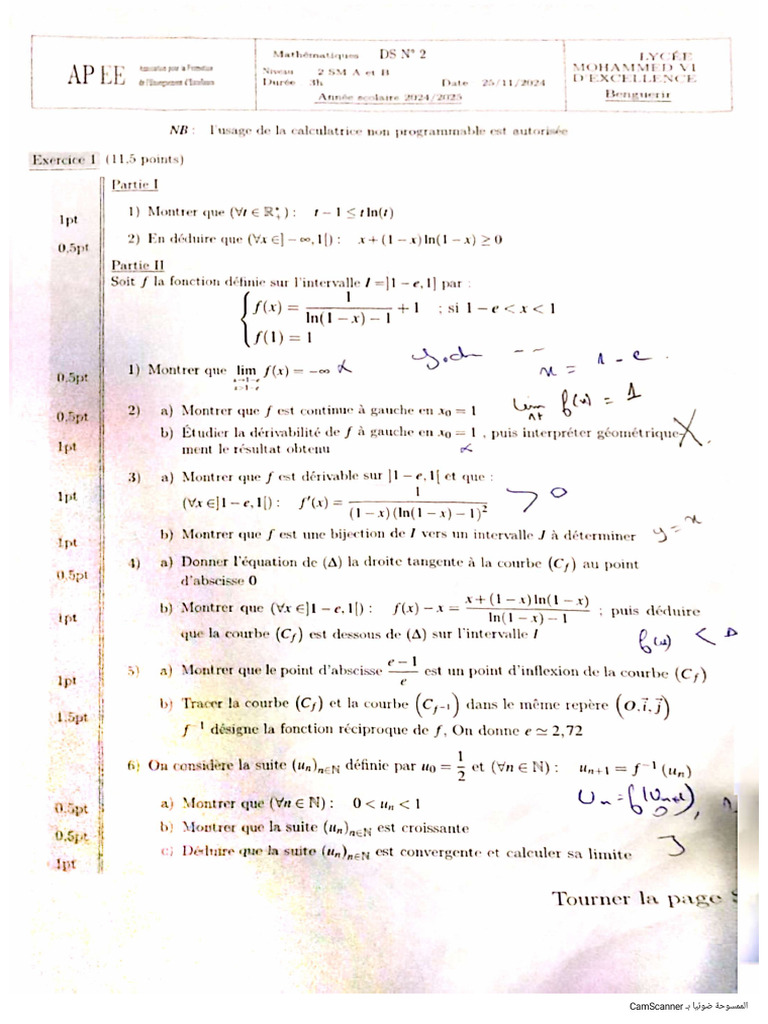 AP EE
Association pour la Promotion
de l'Enseignement d'Excellence
Mathématiques DS N° 2
Niveau 2 SM A et B
Durée 3h Date 25/11/2024
Année scolaire 2024/2025
LYCÉE
MOHAMMED VI
D'EXCELLENCE
Benguerir
NB : l'usage de la calculatrice non programmable est autorisée
Exercice 1 (11,5 points)
Partie I
1pt 1) Montrer que (∀t ∈ ℝ*₊) : t − 1 ≤ t ln(t)
0.5pt 2) En déduire que (∀x ∈] − ∞, 1[) : x + (1 − x) ln(1 − x) ≥ 0
Partie II
Soit f la fonction définie sur l'intervalle I =]1 − e, 1] par :
{ f(x) = 1/(ln(1 − x) − 1) + 1 ; si 1 − e < x < 1
f(1) = 1
x = 1 - e
0.5pt 1) Montrer que lim f(x) = −∞
x→1−e
x>1−e
0.5pt 2) a) Montrer que f est continue à gauche en x₀ = 1
lim f(x) = 1
1pt b) Étudier la dérivabilité de f à gauche en x₀ = 1 , puis interpréter géométrique-
ment le résultat obtenu
3) a) Montrer que f est dérivable sur ]1 − e, 1[ et que :
1pt (∀x ∈]1 − e, 1[) : f′(x) = 1/((1 − x) (ln(1 − x) − 1)²) > 0
1pt b) Montrer que f est une bijection de I vers un intervalle J à déterminer
y = x
0.5pt 4) a) Donner l'équation de (Δ) la droite tangente à la courbe (C_f) au point
d'abscisse 0
1pt b) Montrer que (∀x ∈]1 − e, 1[) : f(x) − x = (x + (1 − x) ln(1 − x))/(ln(1 − x) − 1) ; puis déduire
que la courbe (C_f) est dessous de (Δ) sur l'intervalle I
f(x) < Δ
1pt 5) a) Montrer que le point d'abscisse (e − 1)/e est un point d'inflexion de la courbe (C_f)
1.5pt b) Tracer la courbe (C_f) et la courbe (C_f⁻¹) dans le même repère (O, i⃗, j⃗)
f⁻¹ désigne la fonction réciproque de f, On donne e ≃ 2,72
6) On considère la suite (uₙ)ₙ∈ℕ définie par u₀ = 1/2 et (∀n ∈ ℕ) : uₙ₊₁ = f⁻¹ (uₙ)
0.5pt a) Montrer que (∀n ∈ ℕ) : 0 < uₙ < 1
Uₙ = f(Uₙ₊₁)
0.5pt b) Montrer que la suite (uₙ)ₙ∈ℕ est croissante
1pt c) Déduire que la suite (uₙ)ₙ∈ℕ est convergente et calculer sa limite
Tourner la page
الممسوحة ضوئيا بـ CamScanner